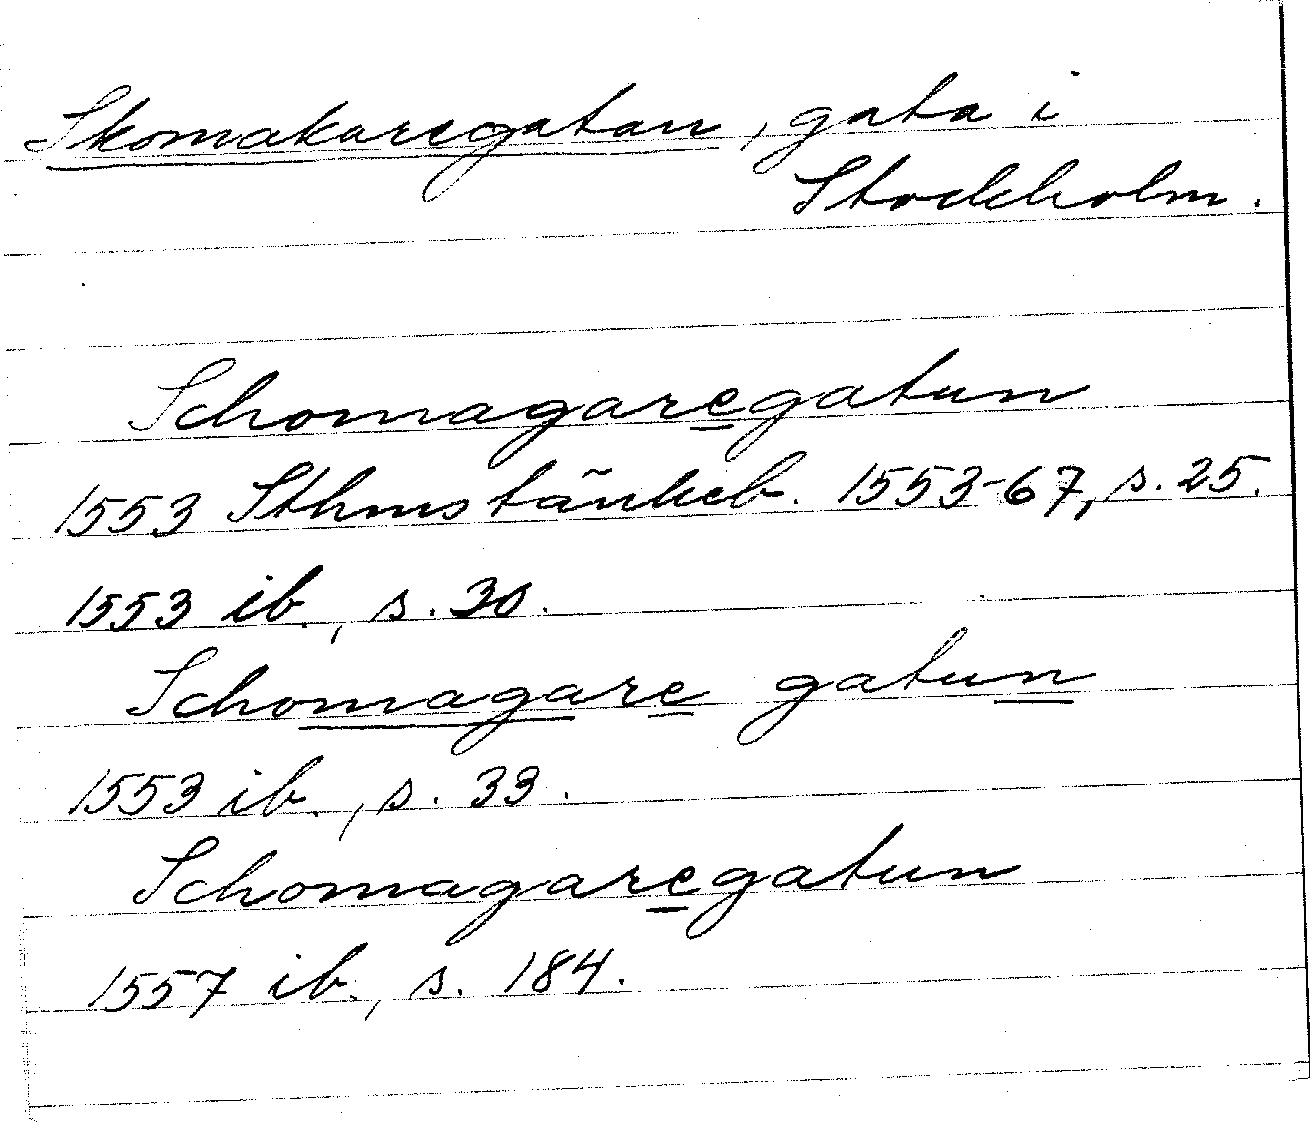 Skomakaregatan, gata i
Stockholm.
Schomagaregatun
1553 Sthms tänkeb. 1553-67, s. 25.
1553 ib., s. 30.
Schomagare gatun
1553 ib., s. 33.
Schomagaregatun
1557 ib., s. 184.